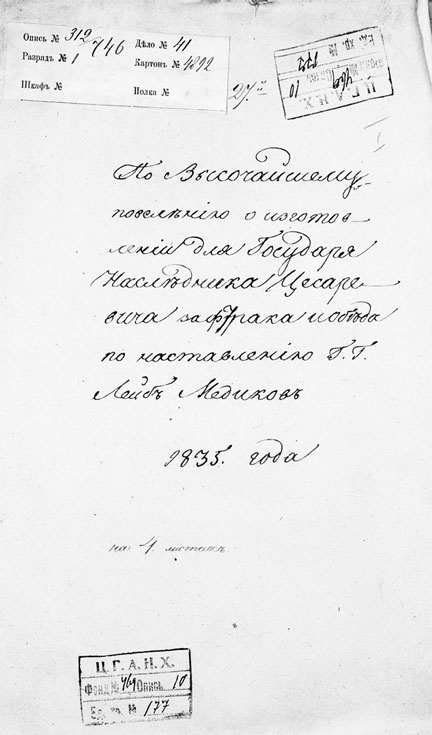 Опись № 312 746 Дѣло № 41
Разрядъ № 1 Картонъ № 4892
Шкафъ № Полка №
Ц. Г. А. Н. Х.
10
177
I
По Высочайшему
повелѣнію о изготов-
леніи для Государя
Наслѣдника Цесаре-
вича зафтрака и обѣда
по наставленію Г. Г.
Лейбъ Медиковъ
1835. года
на 4 листахъ
Ц. Г. А. Н. Х.
Фонд № 469 Опись 10
Ед. хр. № 177